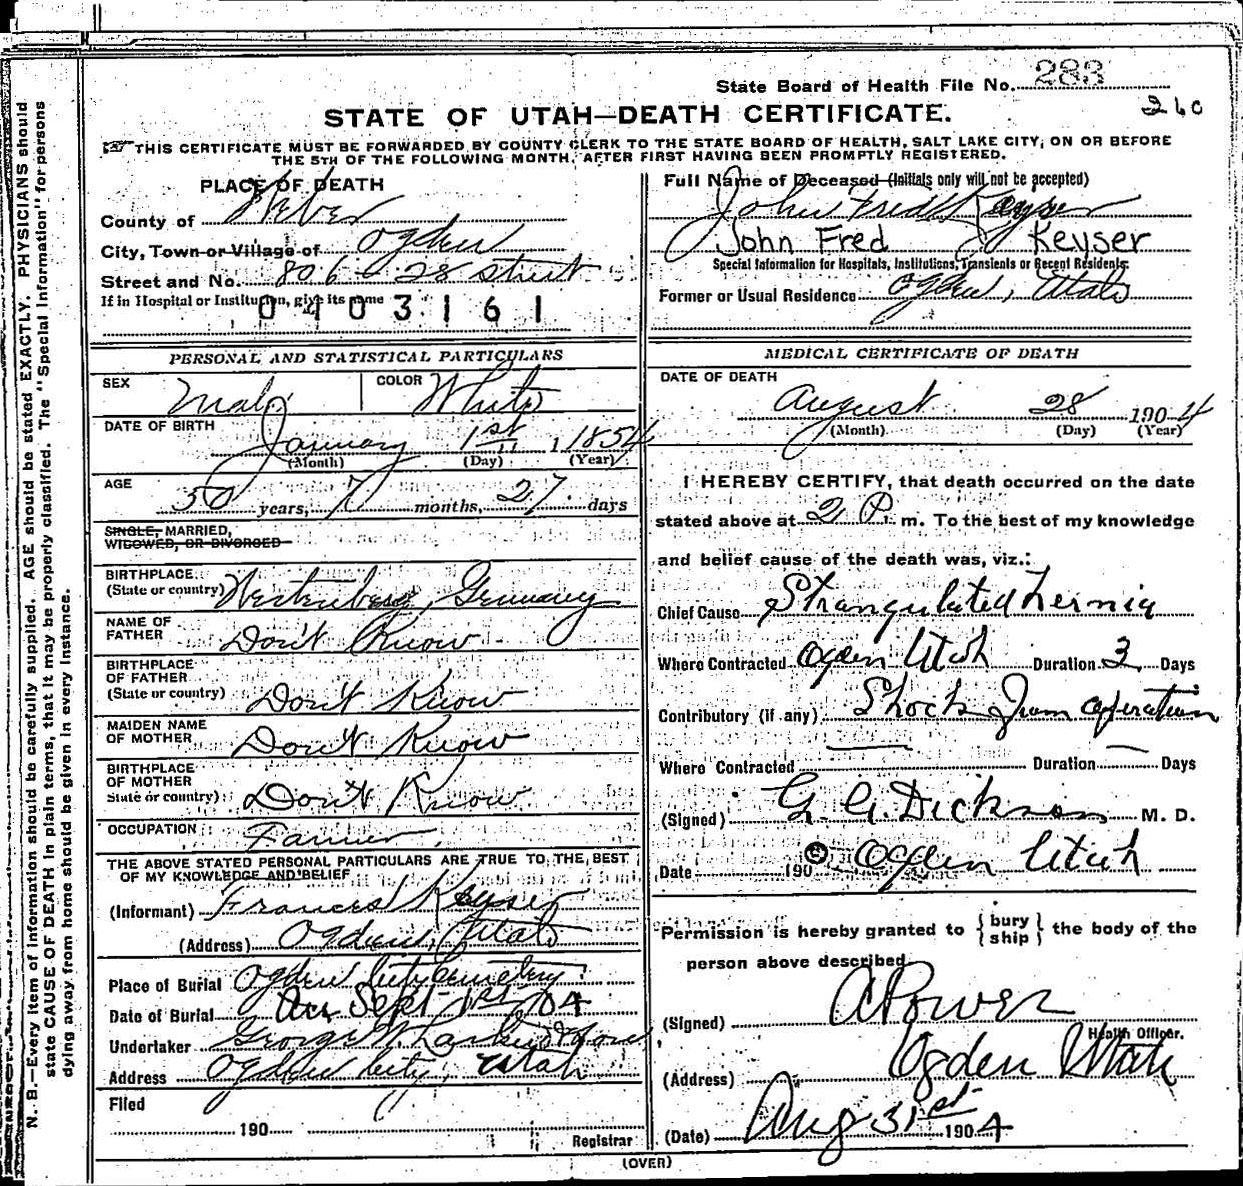 State Board of Health File No. 283
260
STATE OF UTAH—DEATH CERTIFICATE.
THIS CERTIFICATE MUST BE FORWARDED BY COUNTY CLERK TO THE STATE BOARD OF HEALTH, SALT LAKE CITY, ON OR BEFORE
THE 5TH OF THE FOLLOWING MONTH, AFTER FIRST HAVING BEEN PROMPTLY REGISTERED.
PLACE OF DEATH
County of Weber
City, Town or Village of Ogden
Street and No. 806 - 28 street
If in Hospital or Institution, give its name
0403161
Full Name of Deceased (Initials only will not be accepted)
John Fred Keyser
John Fred Keyser
Special Information for Hospitals, Institutions, Transients or Recent Residents.
Former or Usual Residence Ogden, Utah
PERSONAL AND STATISTICAL PARTICULARS
SEX Male COLOR White
DATE OF BIRTH January 1st, 1854
(Month) (Day) (Year)
AGE 50 years, 7 months, 27 days
SINGLE, MARRIED,
WIDOWED, OR DIVORCED
BIRTHPLACE
(State or country) Wertenberg, Germany
NAME OF
FATHER Don't Know
BIRTHPLACE
OF FATHER
(State or country) Don't Know
MAIDEN NAME
OF MOTHER Don't Know
BIRTHPLACE
OF MOTHER
State or country) Don't Know
OCCUPATION Farmer
THE ABOVE STATED PERSONAL PARTICULARS ARE TRUE TO THE BEST
OF MY KNOWLEDGE AND BELIEF
(Informant) Frances Keyser
(Address) Ogden, Utah
Place of Burial Ogden City Cemetery
Date of Burial Sept 1st 04
Undertaker George W. Larkin & Sons
Address Ogden City, Utah
Filed
190 Registrar
MEDICAL CERTIFICATE OF DEATH
DATE OF DEATH
August 28 1904
(Month) (Day) (Year)
I HEREBY CERTIFY, that death occurred on the date
stated above at 2 P. m. To the best of my knowledge
and belief cause of the death was, viz.:
Chief Cause Strangulated Hernia
Where Contracted Ogden Utah Duration 3 Days
Contributory (if any) Shock from operation
Where Contracted Duration Days
(Signed) G. G. Dickson M. D.
Ogden Utah
Date 190
Permission is hereby granted to { bury ship } the body of the
person above described
(Signed) A Power
Health Officer.
(Address) Ogden Utah
(Date) Aug 31st 1904
(OVER)
N. B.—Every item of information should be carefully supplied. AGE should be stated EXACTLY. PHYSICIANS should
state CAUSE OF DEATH in plain terms, that it may be properly classified. The "Special Information" for persons
dying away from home should be given in every instance.